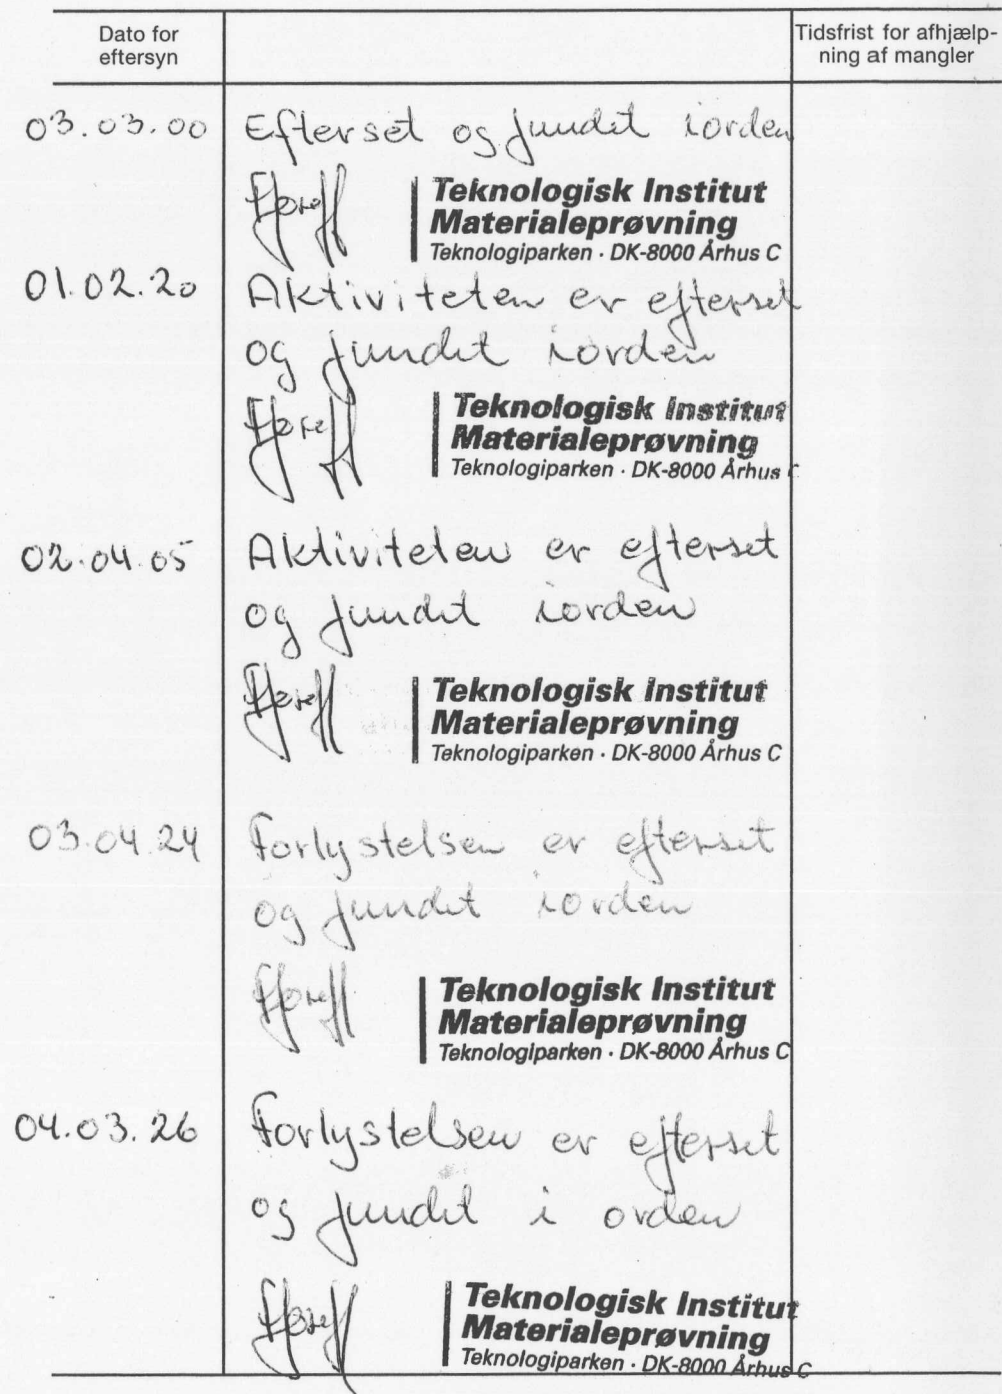 Dato for eftersyn
Tidsfrist for afhjælp-
ning af mangler
03.03.00 Efterset og fundet iorden
Teknologisk Institut
Materialeprøvning
Teknologiparken · DK-8000 Århus C
01.02.20 Aktiviteten er efterset
og fundet iorden
Teknologisk Institut
Materialeprøvning
Teknologiparken · DK-8000 Århus C
02.04.05 Aktiviteten er efterset
og fundet iorden
Teknologisk Institut
Materialeprøvning
Teknologiparken · DK-8000 Århus C
03.04.24 Forlystelsen er efterset
og fundet iorden
Teknologisk Institut
Materialeprøvning
Teknologiparken · DK-8000 Århus C
04.03.26 Forlystelsen er efterset
og fundet i orden
Teknologisk Institut
Materialeprøvning
Teknologiparken · DK-8000 Århus C